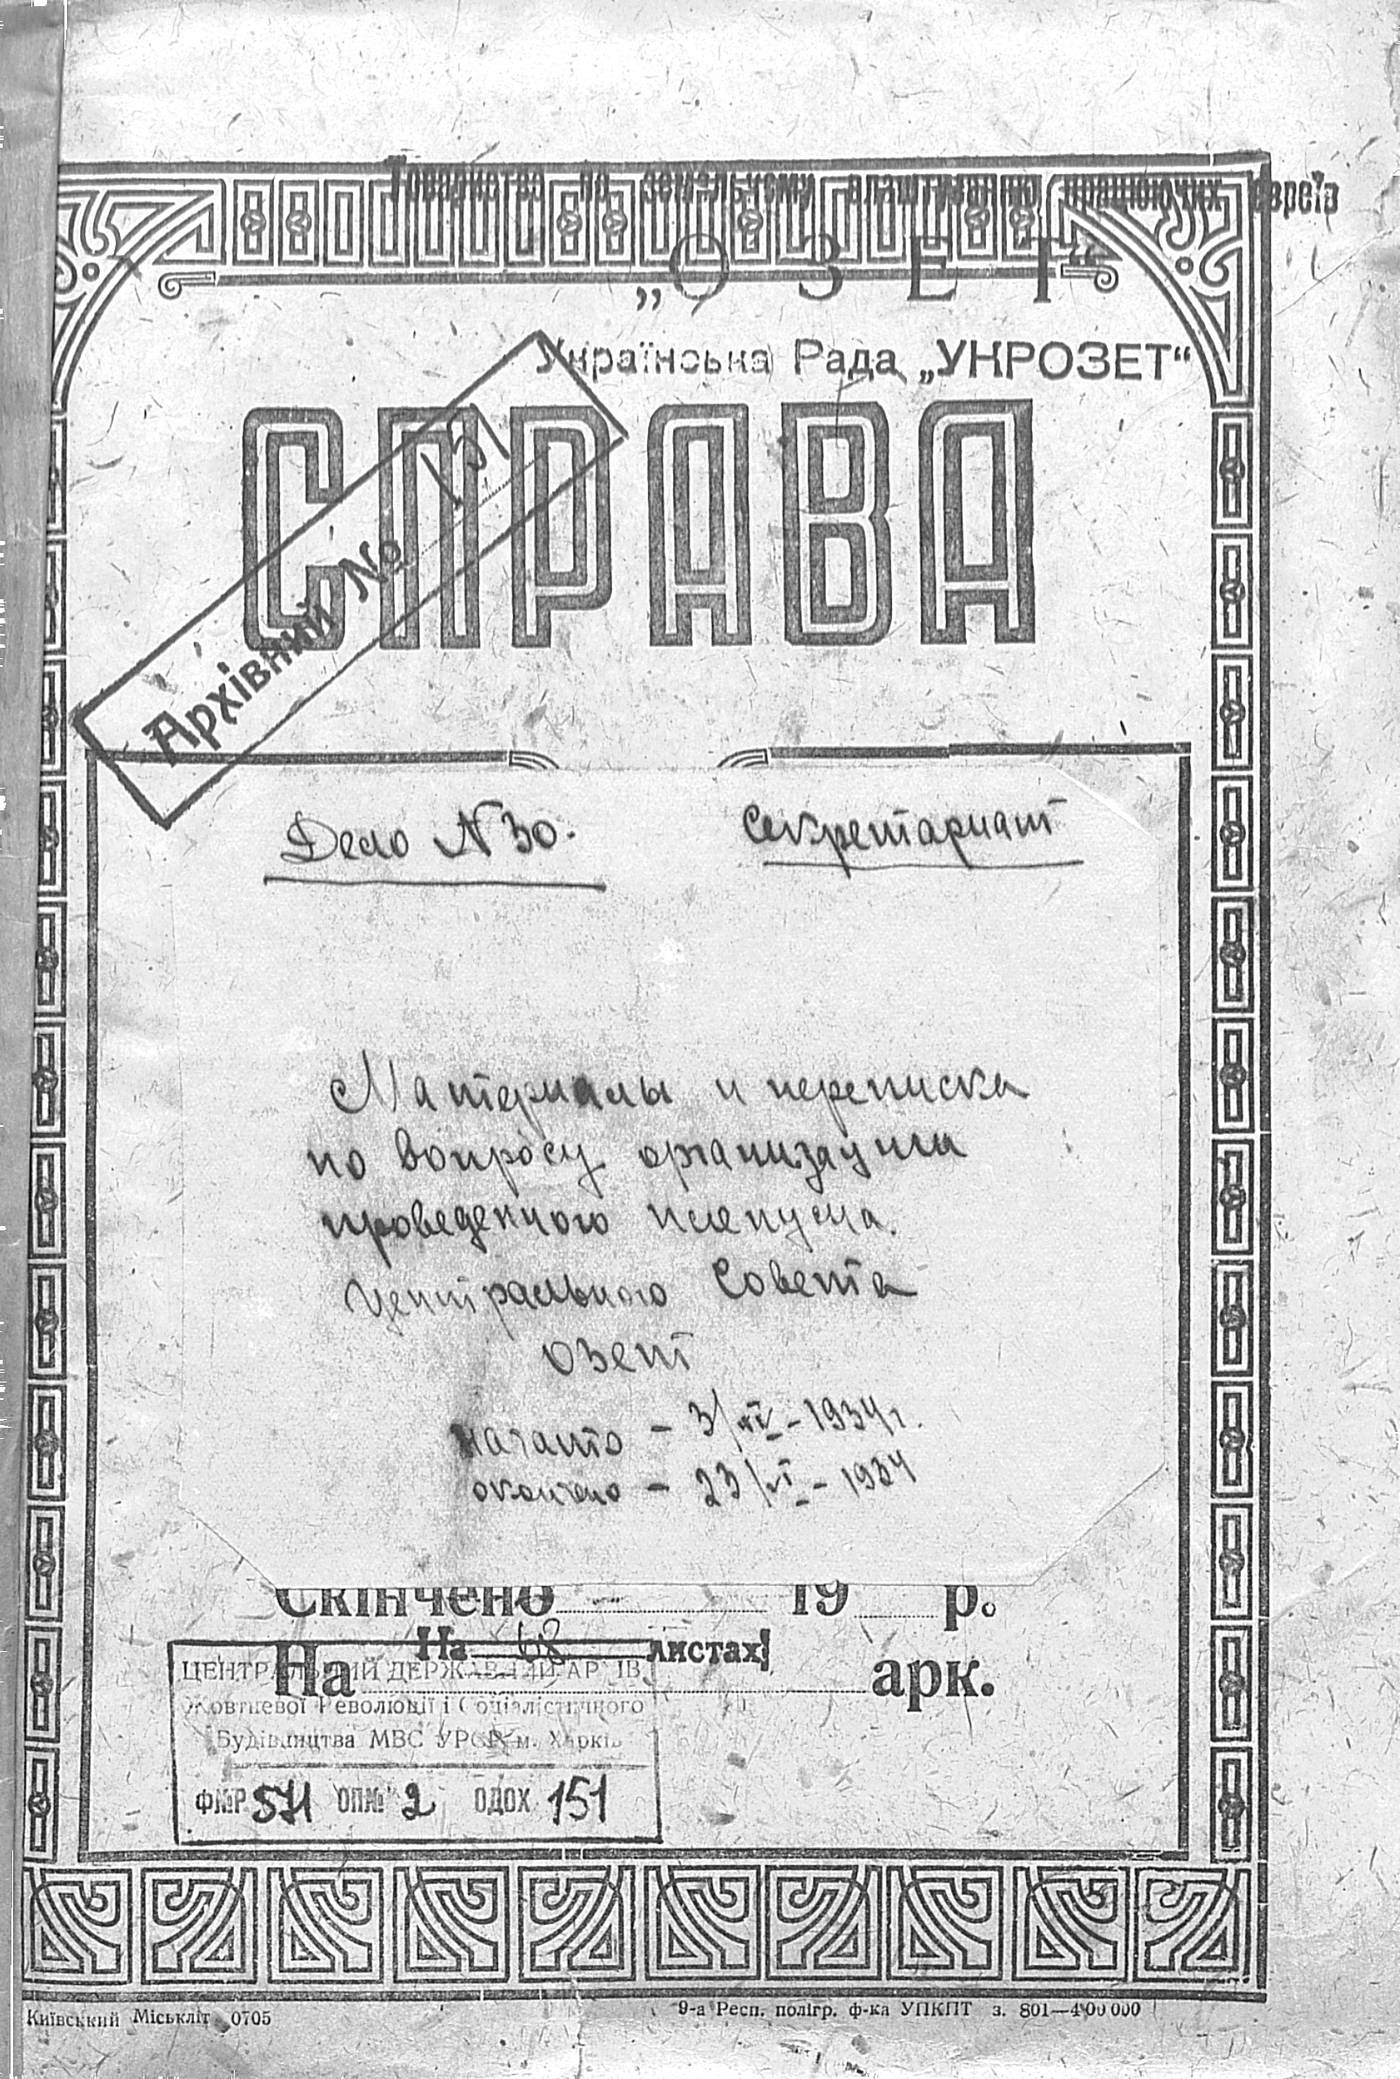 Товариство по земельному влаштуванню працюючих євреїв
„ОЗЕТ“
Українська Рада „УКРОЗЕТ“
СПРАВА
Архівний № 151
Дело N 30.
Секретариат
Материалы и переписка
по вопросу организации
проведенного пленума
Центрального Совета
Озет
начато – 3/IV – 1934 г.
окончено – 23/VI – 1934
Скінчено 19 р.
На 68 листах
На арк.
ЦЕНТРАЛЬНИЙ ДЕРЖАВНИЙ АРХІВ
Жовтневої Революції і Соціалістичного
Будівництва МВС УРСР м. Харків
ФМР 571 ОПМ 2 ОДОХ 151
Київський Міськліт 0705
9-а Респ. полігр. ф-ка УПКПТ з. 801—400000